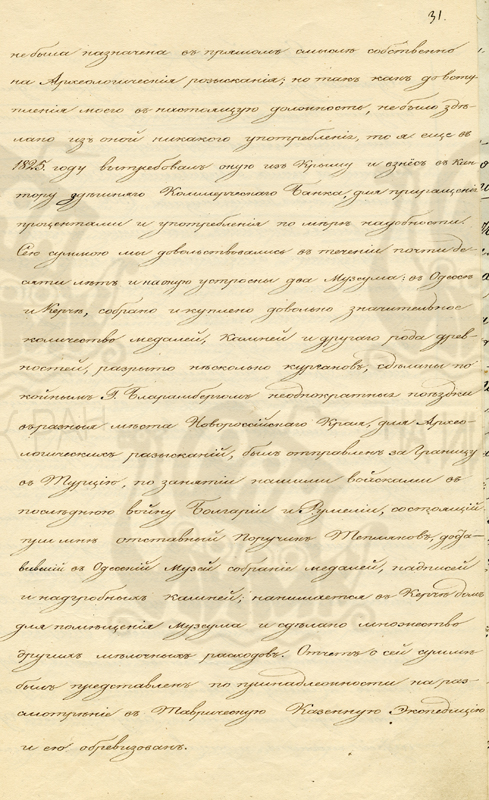 31.
не была назначена въ прямомъ смыслѣ собственно
на Археологическія розысканія; но такъ какъ до всту-
пленія моего въ настоящую должность, не было здѣ-
лано изъ оной никакого употребленія, то я еще въ
1825. году вытребовалъ оную изъ Крыму и внёсъ въ кон-
тору здѣшняго Коммерческаго Банка, для приращенія
процентами и употребленія по мѣрѣ надобности.
Сею суммою мы довольствовались въ теченіи почти де-
сяти лѣтъ и на оную устроены два Музеума: въ Одессѣ
и Керчѣ, собрано и куплено довольно значительное
количество медалей, Камней и другаго рода древ-
ностей, разрыто нѣсколько кургановъ, сдѣланы по-
койнымъ Г. Бларамбергомъ неоднократныя поѣздки
въ разныя мѣста Новороссійскаго Края, для Архео-
логическихъ разысканій, былъ отправленъ за Границу
въ Турцію, по занятіи нашими войсками въ
послѣднюю войну Болгаріи и Румеліи, состоящій
при мнѣ отставный Поручикъ Тепляковъ, доста-
вившій въ Одесскій Музей собраніе медалей, надписей
и надгробныхъ камней; нанимается въ Керчѣ домъ
для помѣщенія Музеума и сдѣлано множество
другихъ мѣлочныхъ расходовъ. Отчетъ о сей суммѣ
былъ представленъ по принадлежности на раз-
смотрѣніе въ Таврическую Казенную Экспедицію
и ею обревизованъ.
РАН